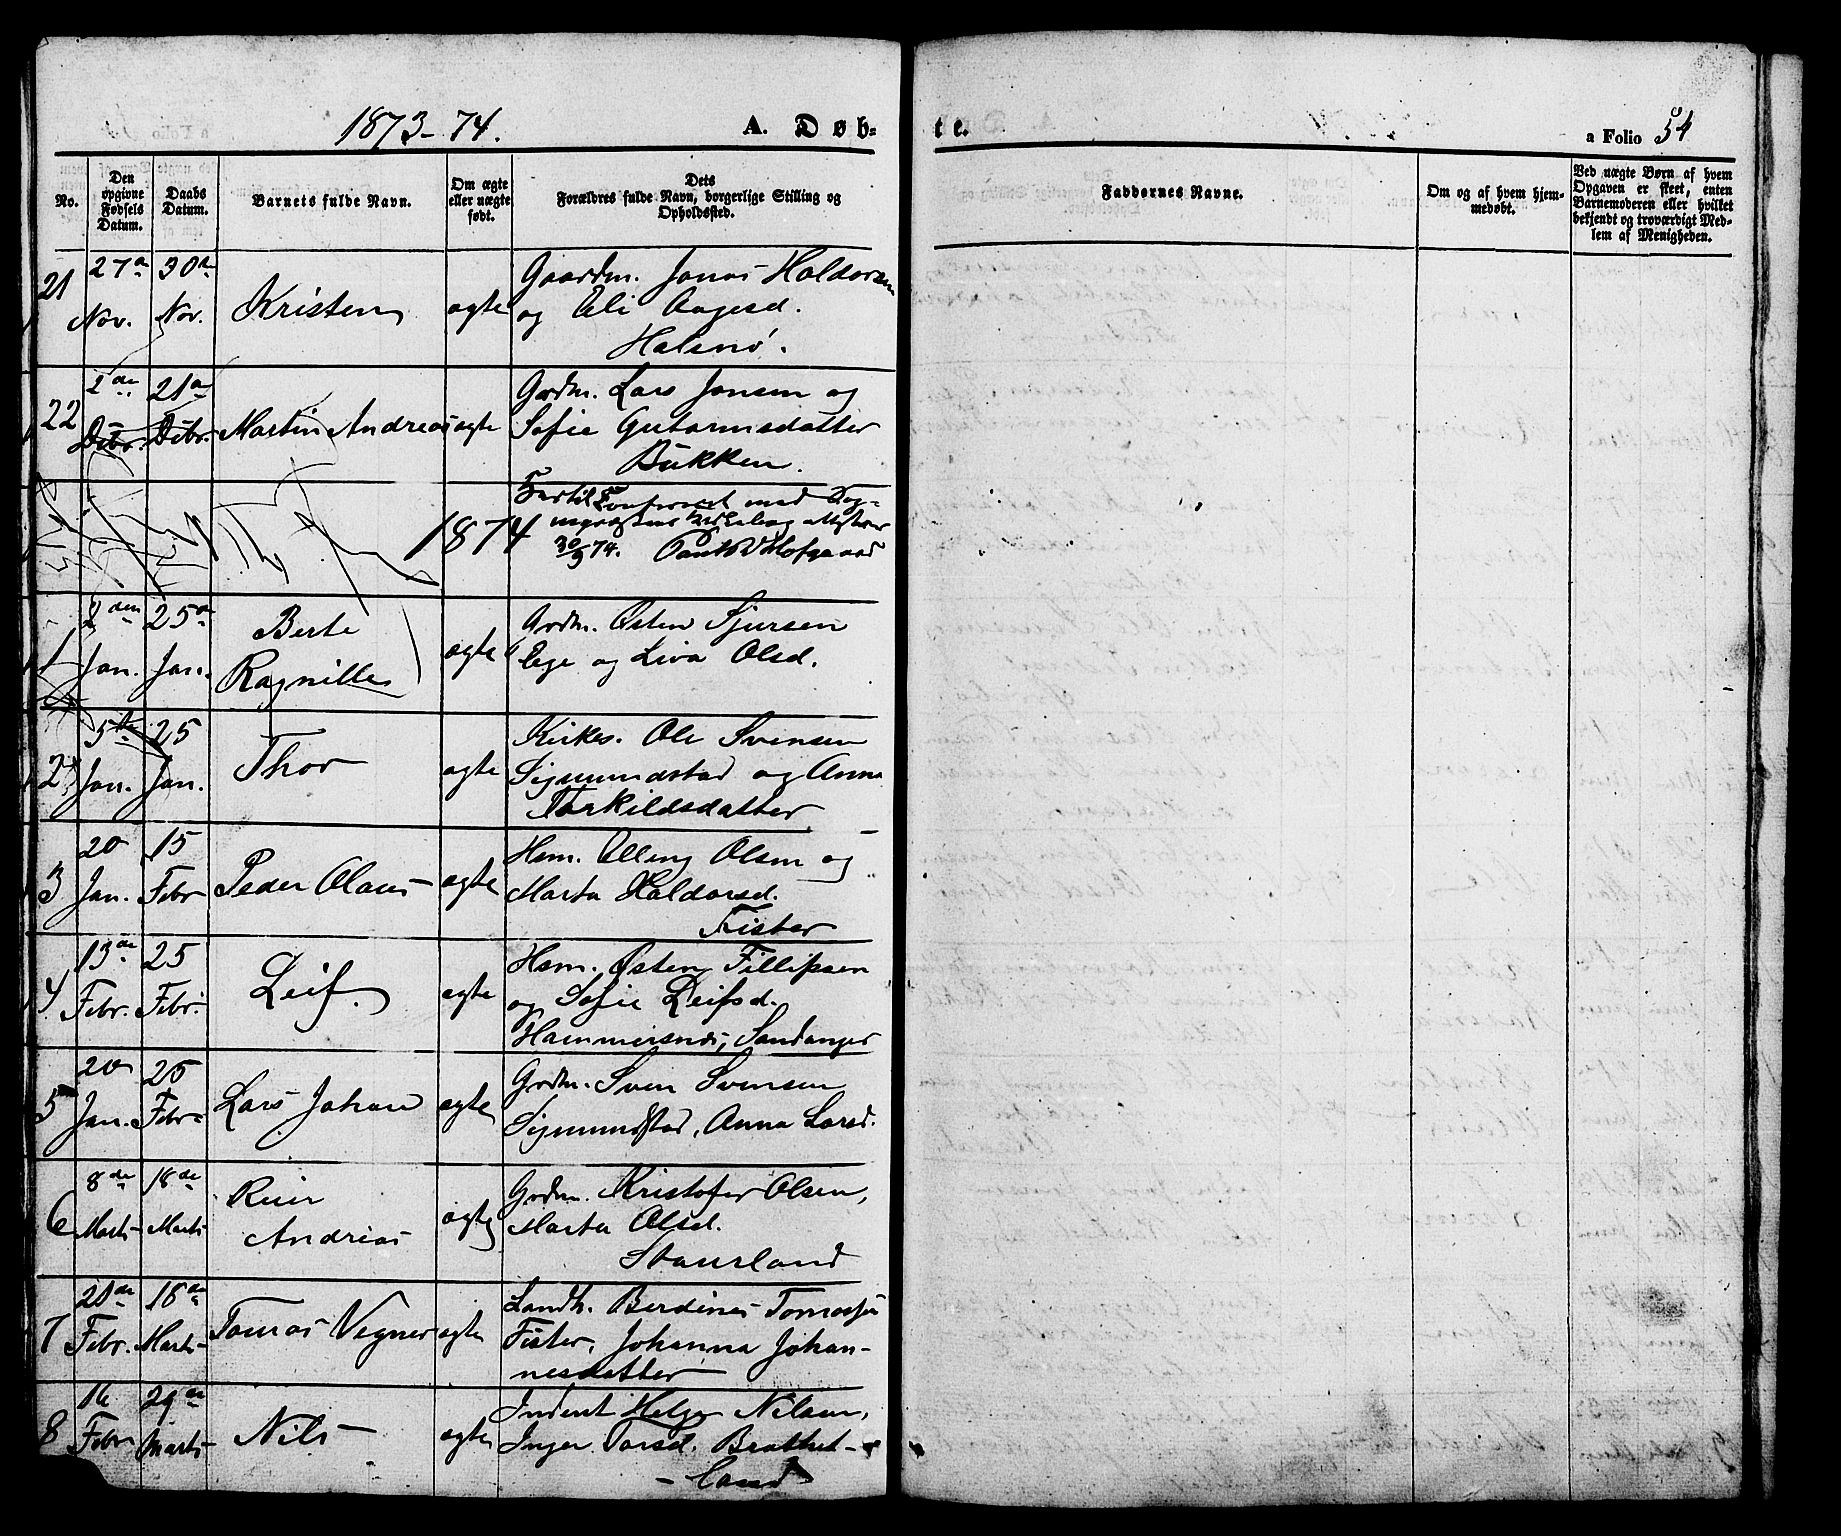 1873-74. A. Døb-
No.
Den opgivne Fødsels Datum.
Daabs Datum.
Barnets fulde Navn.
Om ægte eller uægte født.
Dets Forældres fulde Navn, borgerlige Stilling og Opholdssted.
21 27de Nov. 30de Nov. Kristen ægte Gaardm. Jonas Haldorsen
og Eli Aagesd.
Halsnø.
22 1de Debr. 21de Debr. Martin Andreas ægte Grdm. Lars Jonsen og
Sofie Gutormsdatter
Bukken.
1874
med
30/9 74. Hofgaard
1 2den Jan. 25de Jan. Berte Ragnille ægte Grdm. Østen Sjursen
Ege og Liva Olsd.
2 5te Jan. 25 Jan. Thor ægte Kirkes. Ole Svensen
Sigmundstad og Anna
Torkildsdatter
3 20 Jan. 15 Febr Peder Olaus ægte Hsm. Elling Olsen og
Marta Haldorsd.
Fister
4 13de Febr. 25 Febr. Leif. ægte Hsm. Østen Fillipsen
og Sofie Leifsd.
Hammersnes, Sandanger
5 20 Jan. 25 Febr Lars Johan ægte Grdm. Sven Svensen
Sigmundstad, Anna Larsd.
6 8de Marts 18de Marts Reier Andreas ægte Grdm. Kristofer Olsen,
Marta Olsd.
Staurland
7 21de Febr. 18de Marts Tomas Vegner ægte Landh. Berdines Tomasen
Fister, Johanna Johan-
nesdatter
8 16 Febr 29de Marts Nils ægte Inderst Helge Nilsen,
Inger Torsd. Brathet-
land
te. a Folio 54
Faddernes Navne.
Om og af hvem hjem-
medøbt.
Ved uægte Børn af hvem
Opgaven er skeet, enten
Barnemoderen eller hvilket
bekjendt og troværdigt Med-
lem af Menigheden.